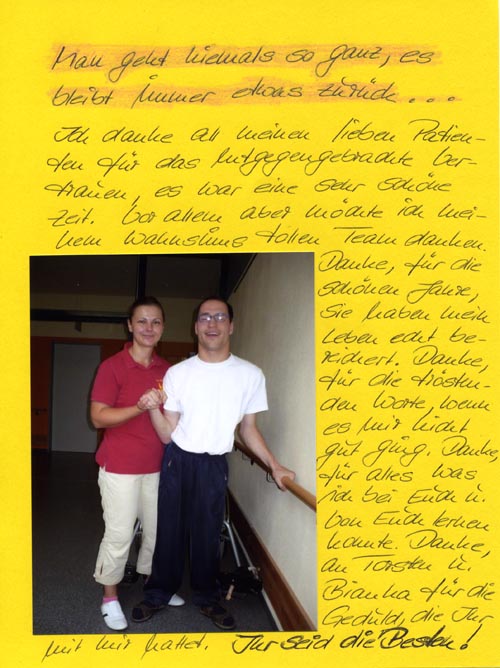 Man geht niemals so ganz, es
bleibt immer etwas zurück...
Ich danke all meinen lieben Patien-
ten für das entgegengebrachte Ver-
trauen, es war eine sehr schöne
Zeit. Vor allem aber möchte ich mei-
nem Wahnsinns tollen Team danken.
Danke, für die
schönen Jahre,
Sie haben mein
Leben echt be-
reichert. Danke,
für die trösten-
den Worte, wenn
es mir nicht
gut ging. Danke,
für alles was
ich bei Euch u.
von Euch lernen
konnte. Danke,
an Torsten u.
Bianka für die
Geduld, die Ihr
mit mir hattet. Ihr seid die Besten!